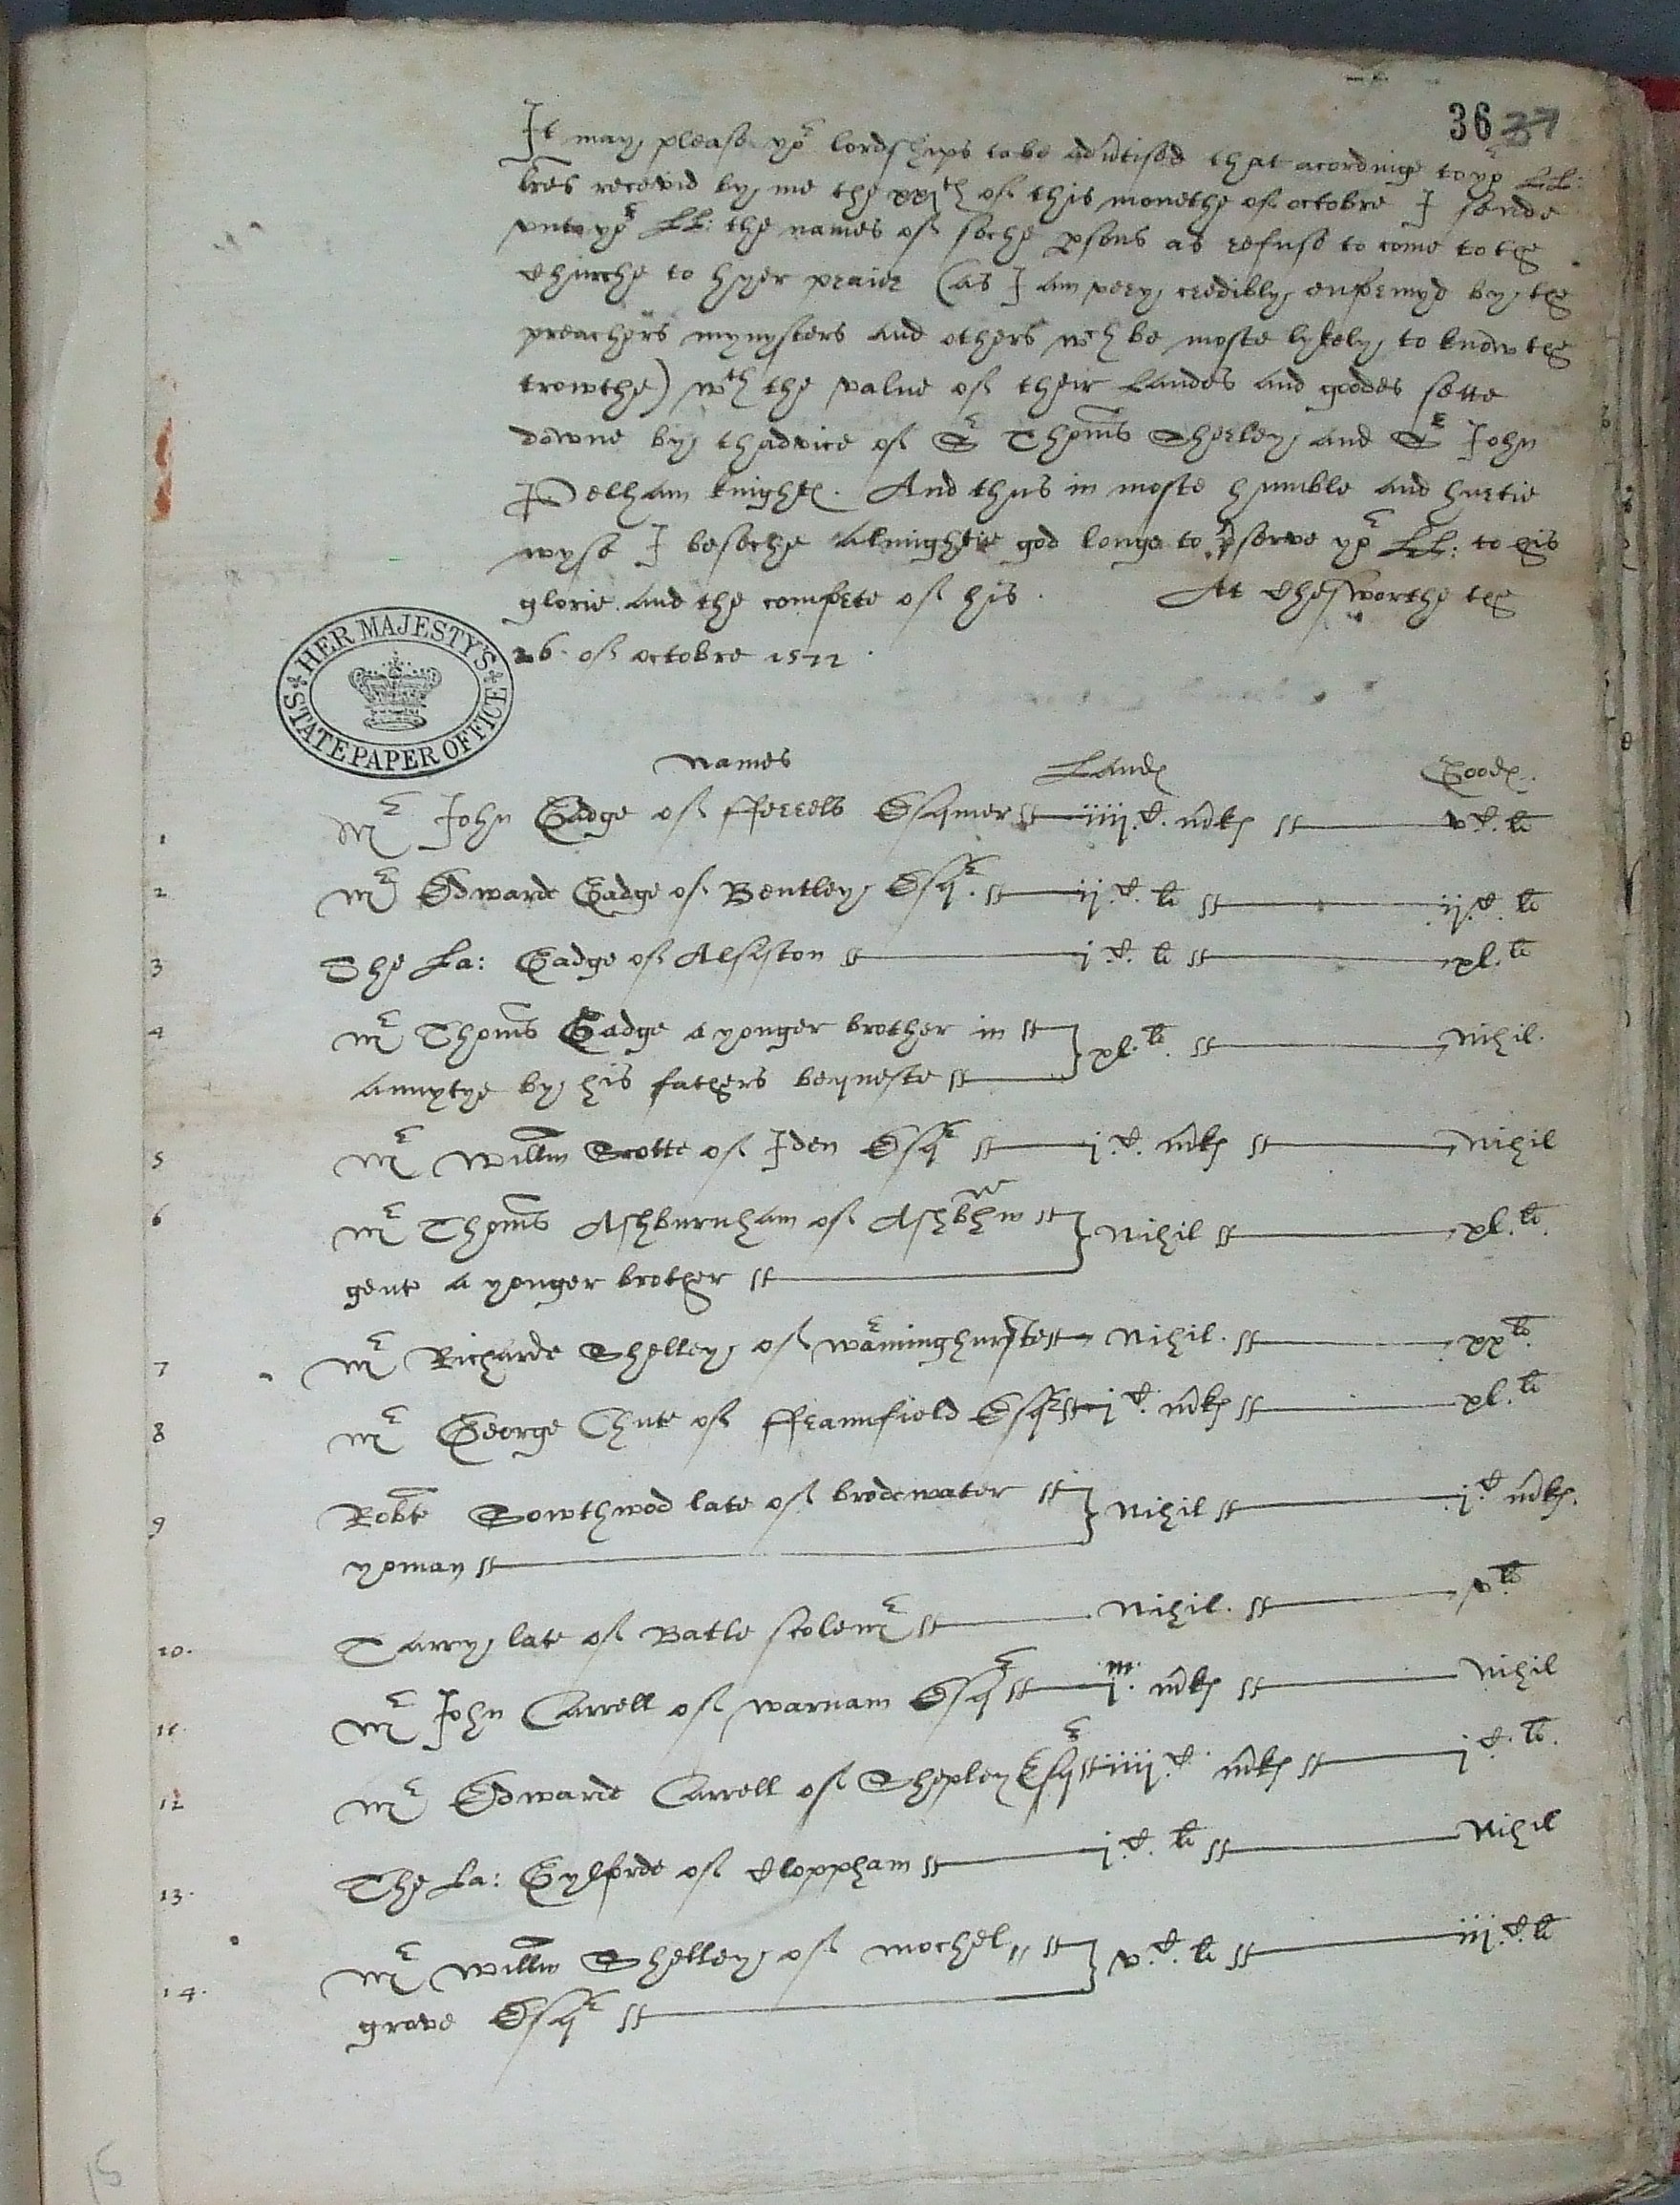 36 37
It may please yor lordships to be advtised that acordinge to yor LL:
lres recevid by me the xxjth of this monethe of octobre I sende
unto yor LL: the names of soche psons as refuse to come to the
Churche to hyer praier (as I am very credibly enformyd by the
preachers mynysters and others wch be moste lykely to know the
trowthe) wth the value of their Landes and goodes sette
downe by thadvice of Sr Thoms Sherley and Sr John
Pelham knightes. And thus in moste humble and hurtie
wyse I beseche almightie god longe to pserve yor LL: to his
glorie and the comforte of his. At Chesworthe the
26. of octobre 1577.
HER MAJESTY'S STATE PAPER OFFICE
Names Landes Goodes.
1 Mr John Gadge of fferrels Esquier iiij.C. mrkes vC. li
2 Mr Edwarde Gadge of Bentley Esqr. ij.C. li ij.C. li
3 The La: Gadge of Alsiston j.C. li xl. li
4 Mr Thoms Gadge a yonger brother in xl. li. Nihil.
annytye by his fathers bequeste
5 Mr Willm Scotte of Iden Esqr j.C. mrkes Nihil
6 Mr Thoms Ashburnham of Ashbhm Nihil xl. li.
gent a yonger brother
7 Mr Richarde Shelley of warminghurste Nihil. xx li.
8 Mr George Chute of fframfield Esqr j C. mrkes xl. li
9 Robte Sowthwod late of brodewater Nihil j.C mrkes.
yoman
10. Tarry late of Batle scolemr Nihil. v. li
11. Mr John Carrell of warnam Esqr j.m. mrkes Nihil
12 Mr Edwarde Carrell of Shepley Esqr iiij.C. mrkes j C. li.
13. The La: Gylforde of Cloppham j.C. li Nihil
14. Mr Willm Shelley of mochel v.C. li iij.C. li
grove Esqr
15